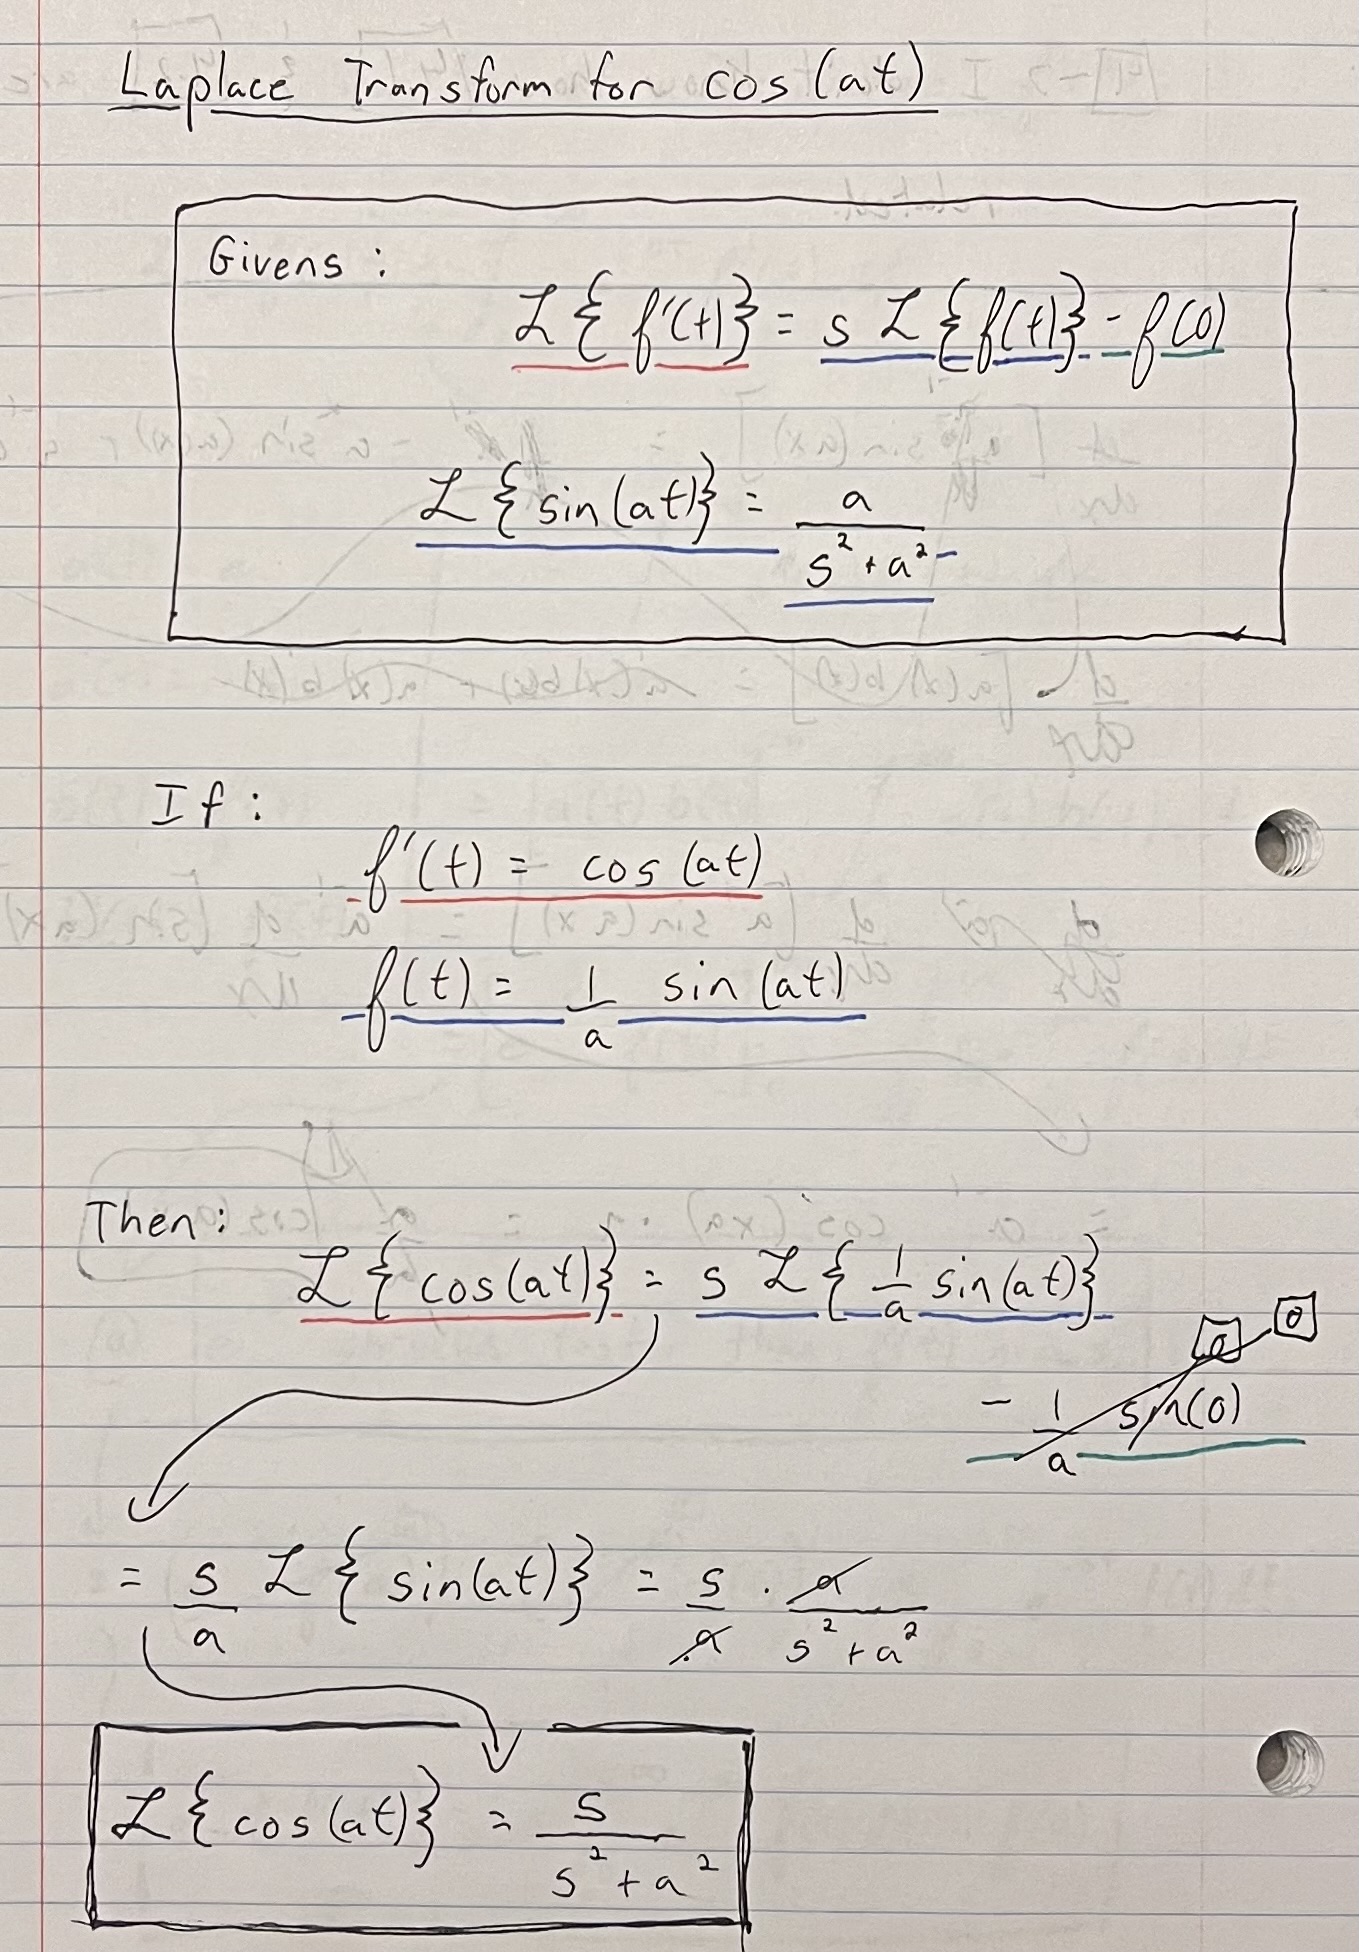 Laplace Transform for cos(at)
Givens:
ℒ{f'(t)} = s ℒ{f(t)} - f(0)
ℒ{sin(at)} = a / (s² + a²)
If:
f'(t) = cos(at)
f(t) = 1/a sin(at)
Then:
ℒ{cos(at)} = s ℒ{1/a sin(at)}
0 0
- 1/a sin(0)
= s/a ℒ{sin(at)} = s/a · a/(s² + a²)
ℒ{cos(at)} = s/(s² + a²)